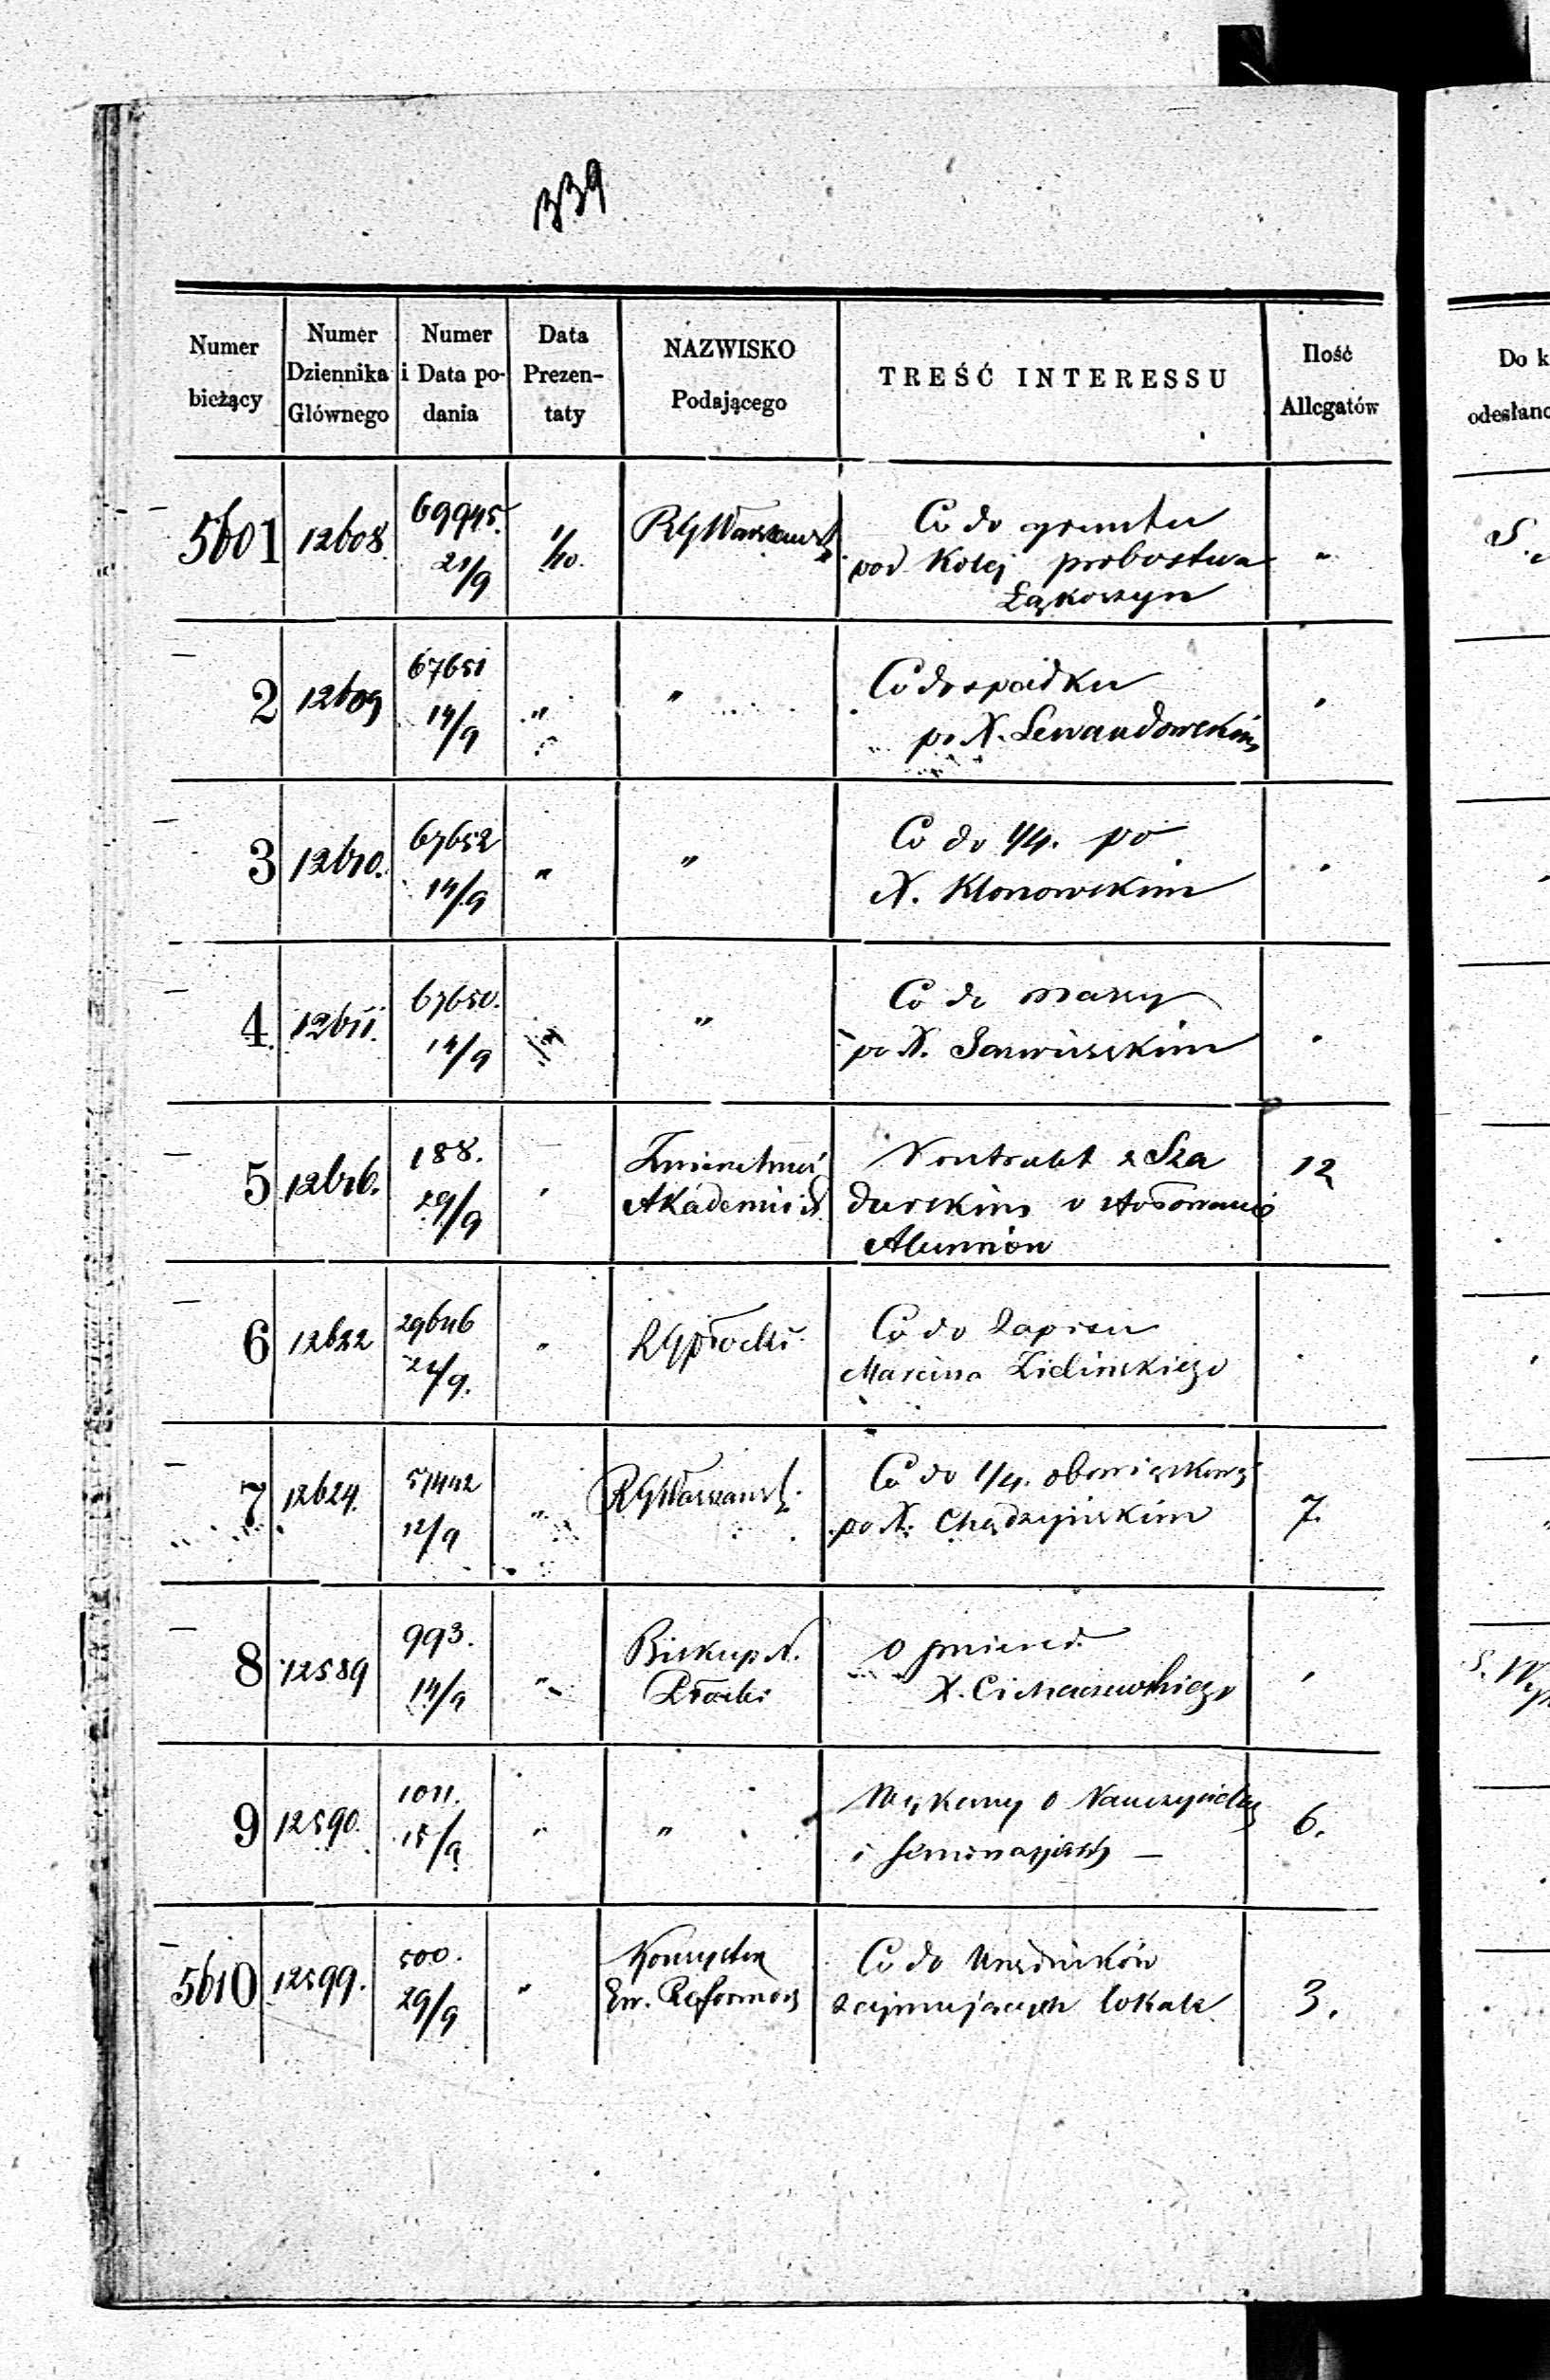 339
Numer bieżący | Numer Dziennika Głównego | Numer i Data podania | Data Prezentaty | NAZWISKO Podającego | TREŚĆ INTERESSU | Ilość Allegatów | Do k
odesłano
5601 12608. 69945. 21/9 1/10. RGWarszawsk. Co do gruntu
pod Kolej probostwa "
Łąkoszyn
2 12609 67651 14/9 " " Co do spadku
po X. Lewandowskim "
3 12610. 67652 14/9 " " Co do 1/4. po
X. Klonowskim "
4 12611. 67650. 14/9 " Co do massy
po X. "
5 12616. 188. 29/9 " Zwierzchność Kontrakt z Sza 12
Akademii durskim o stołowanie
Alumnów
6 12622 29646 21/9. " RGPłocki Co do Zapisu
Marcina Zielińskiego "
7 12624. 51442 12/9 " RGWarszawsk. Co do 1/4. obowiązkowej
po X. Chądzyńskim 7.
8 12589 993. 14/9 " Biskup X. O śmierci
Płocki X. "
9 12590. 1011. 15/9 " " Wykazy o Nauczycielach
i Seminarjach — 6.
5610 12599. 500. 29/9 " Konsystorz Co do Urzędników
Ew. Reformow zajmujących lokale 3.